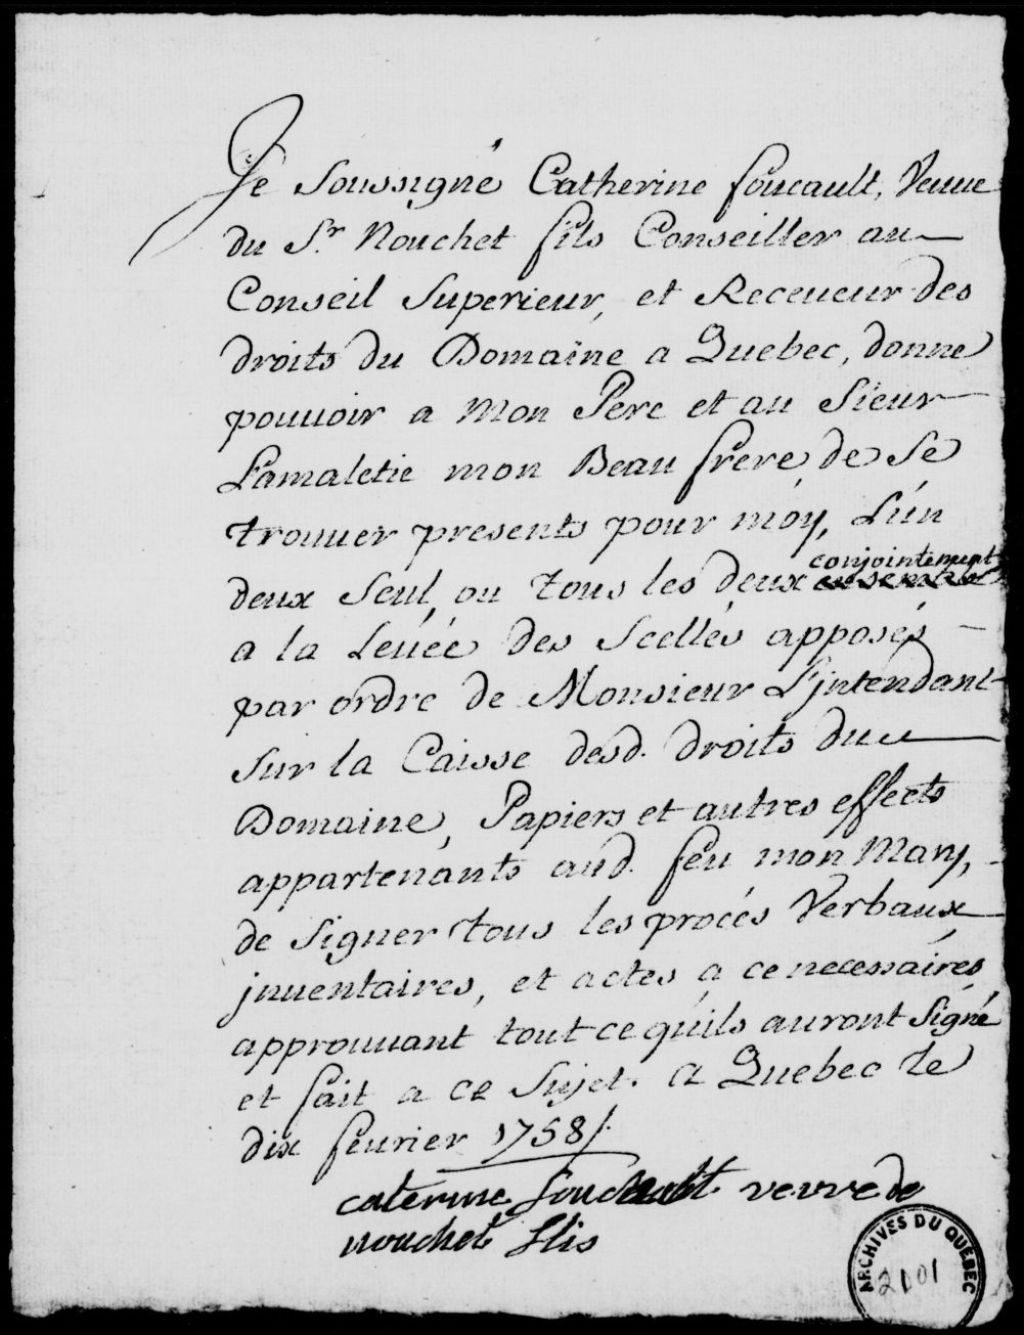 Je Soussigné Catherine foucault, Veuue
du Sr. Nouchet fils Conseiller au
Conseil Superieur, et Receueur des
droits du Domaine a Quebec, donne
pouuoir a Mon Pere et au Sieur
Lamaletie mon Beau frere de Se
trouuer presents pour moy, L'un
deux Seul, ou tous les deux conjointement ensemble
a la Leuée des Scellés apposés
par ordre de Monsieur L'jntendant
Sur la Caisse desd. droits du
Domaine, Papiers et autres effects
appartenants aud. feu mon Mary,
de Signer tous les procés Verbaux
jnuentaires, et actes a ce necessaires,
approuuant tout ce quils auront Signé
et fait a ce Sujet. a Quebec le
dix feurier 1758/.
caterine fouchault vevve de
nouchet flis
ARCHIVES DU QUÉBEC
2101